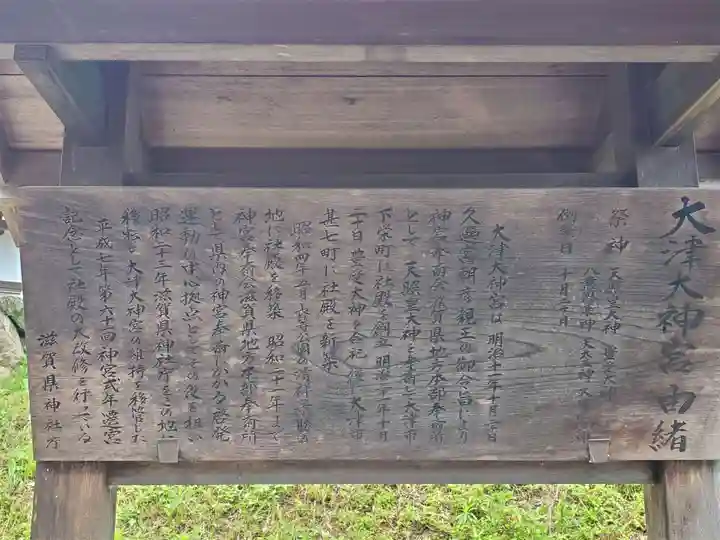 大津大神宮由緒
祭神 天照皇大神 豊受大神
例祭日 十月二十日
大津大神宮は、明治十一年十月二十日
久邇宮朝彦親王の御令旨により
神宮奉斎会滋賀県地方本部奉斎所
として 天照皇大神を奉斎し大津市
下栄町に社殿を創立 明治 年十月
二十日 豊受大神を合祀 大津市
甚七町に社殿を新築
昭和四年五月
地に社殿を移築 昭和二十一年まで
神宮奉斎会滋賀県地方本部奉斎所
として県内の神宮奉斎にかかる啓発
運動の中心拠点としてその役を担い
昭和二十二年滋賀県神社庁をこの地に
移転し大津大神宮の維持を移管した
平成七年第六十一回神宮式年遷宮
記念として社殿の大改修を行っている
滋賀県神社庁